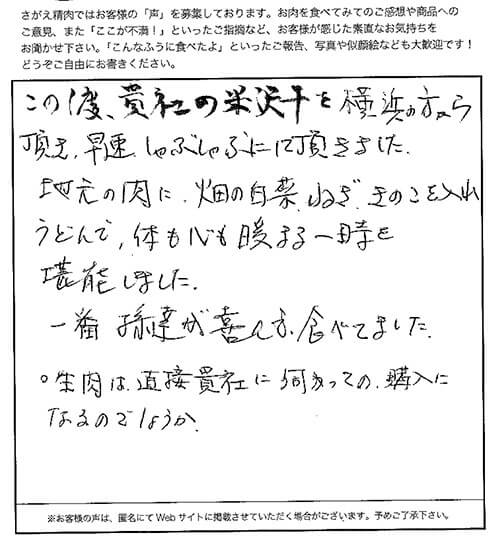 さがえ精肉ではお客様の「声」を募集しております。お肉を食べてみてのご感想や商品への
ご意見、また「ここが不満！」といったご指摘など、お客様が感じた素直なお気持ちを
お聞かせ下さい。「こんなふうに食べたよ」といったご報告、写真や似顔絵なども大歓迎です！
どうぞご自由にお書きください。
この度、貴社の米沢牛を横浜の方から
頂き、早速、しゃぶしゃぶにて頂きました。
地元の肉に、畑の白菜、ねぎ、きのこを入れ
うどんで、体も心も暖まる一時を
堪能しました。
一番孫達が喜んで食べてました。
○牛肉は、直接貴社に伺っての、購入に
なるのでしょうか。
※お客様の声は、匿名にてWebサイトに掲載させていただく場合がございます。予めご了承下さい。